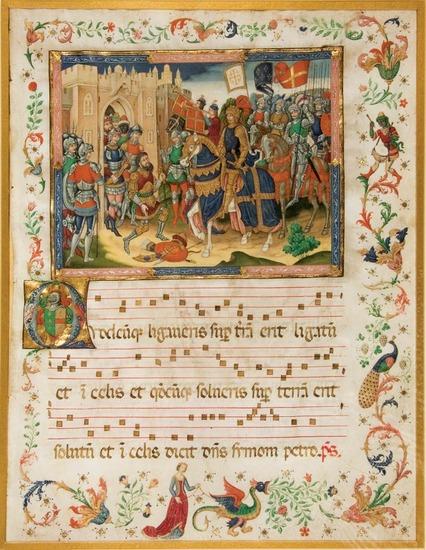 Quodcūq ligaveris sup trā erit ligatū
et ī celis et qdcūq solveris sup terrā erit
solutū et ī celis dicit dns simoni petro. ps